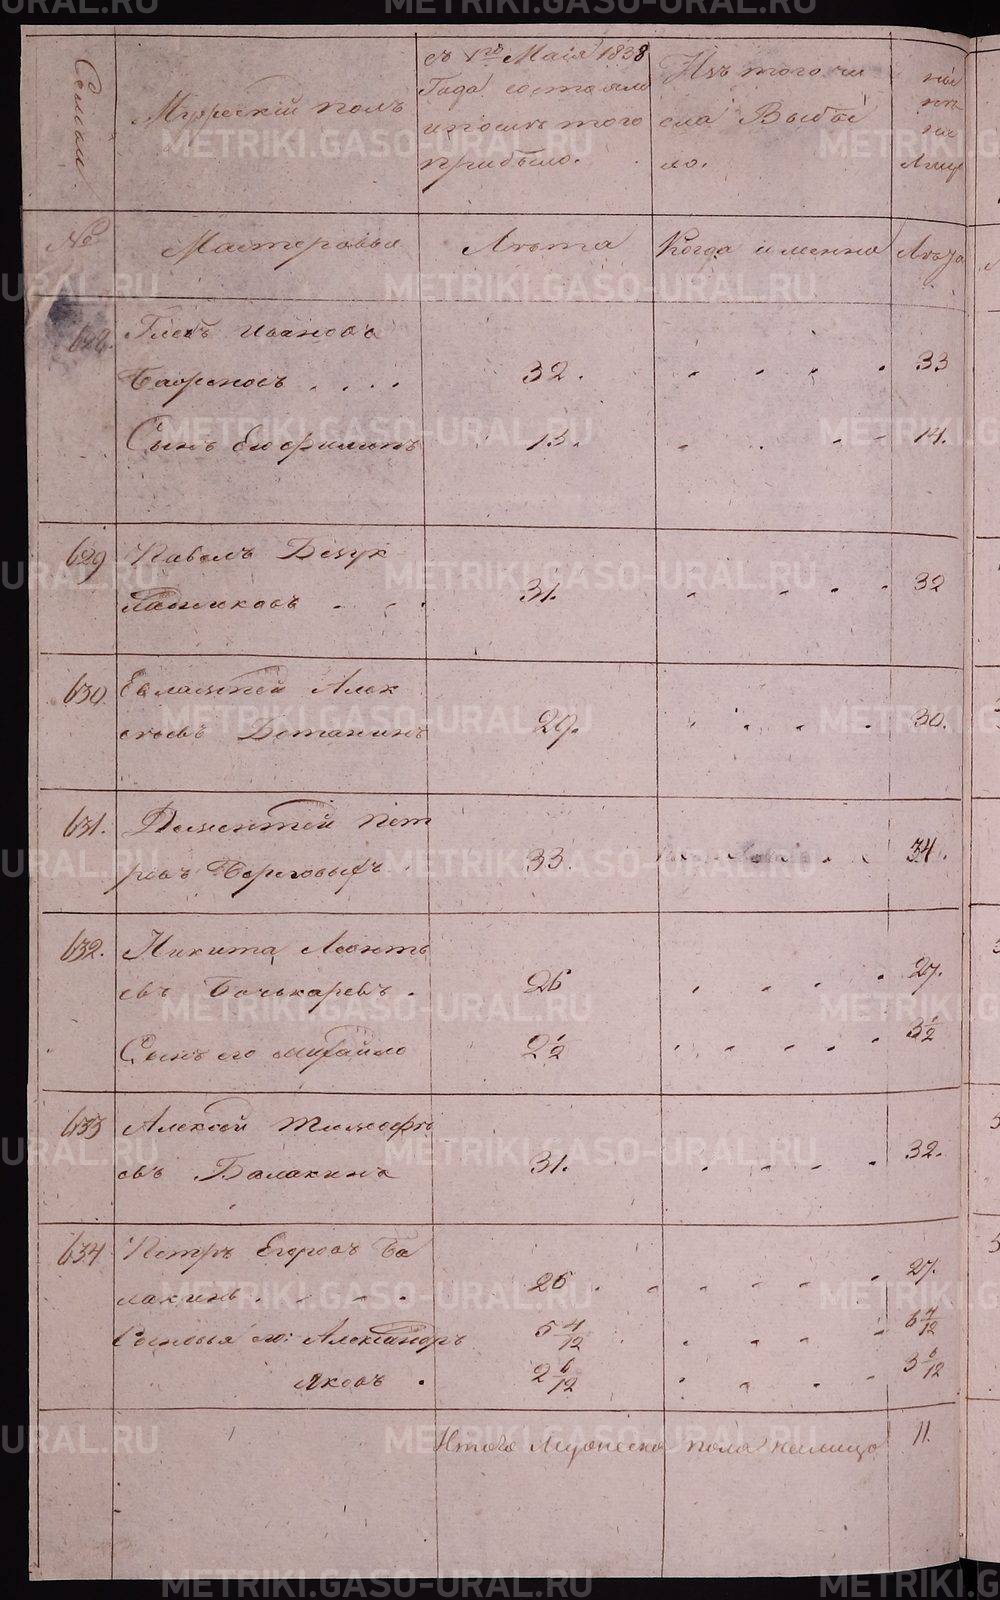 METRIKI.GASO-URAL.RU
Семьи
Мужескій полъ
съ 1го Маія 1838
Года состояло
и после того
прибыло.
Изъ того чи
сла Выбы
ло.
№
Мастеровые
Лѣта
Когда именно
Лѣта
628.
Глебъ Ивановъ
32. 33
Сынъ Евфимъ 13. 14.
629 Павелъ
31. 32
630. Евлампей Алек
сѣевъ 29. 30.
631. Дементей Пет
ровъ Береговыхъ 33. 34.
632. Никита Леонть
евъ Бочькаревъ. 26 27.
Сынъ его Михайло 2 1/2 3 1/2
633 Алексей Тимофѣ
евъ Балакинъ 31. 32.
634 Петръ Егоровъ Ба
лакинъ 26. 27.
Сыновья его: Александръ 5 4/12 6 4/12
Яковъ. 2 6/12 3 6/12
Итого Мужеска пола налицо 11.